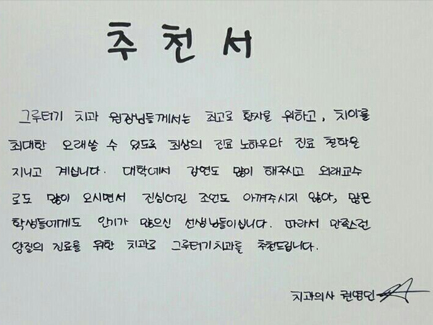 추천서
그루터기 치과 원장님들께서는 최고로 환자를 위하고, 치아를
최대한 오래쓸 수 있도록 최상의 진료 노하우와 진료 철학을
지니고 계십니다. 대학에서 강연도 많이 해주시고 외래교수
로도 많이 오시면서 진심어린 조언도 아껴주시지 않아, 많은
학생들에게도 인기가 많으신 선생님들이십니다. 따라서 만족스런
양질의 진료를 위한 치과로 그루터기치과를 추천드립니다.
치과의사 권영민